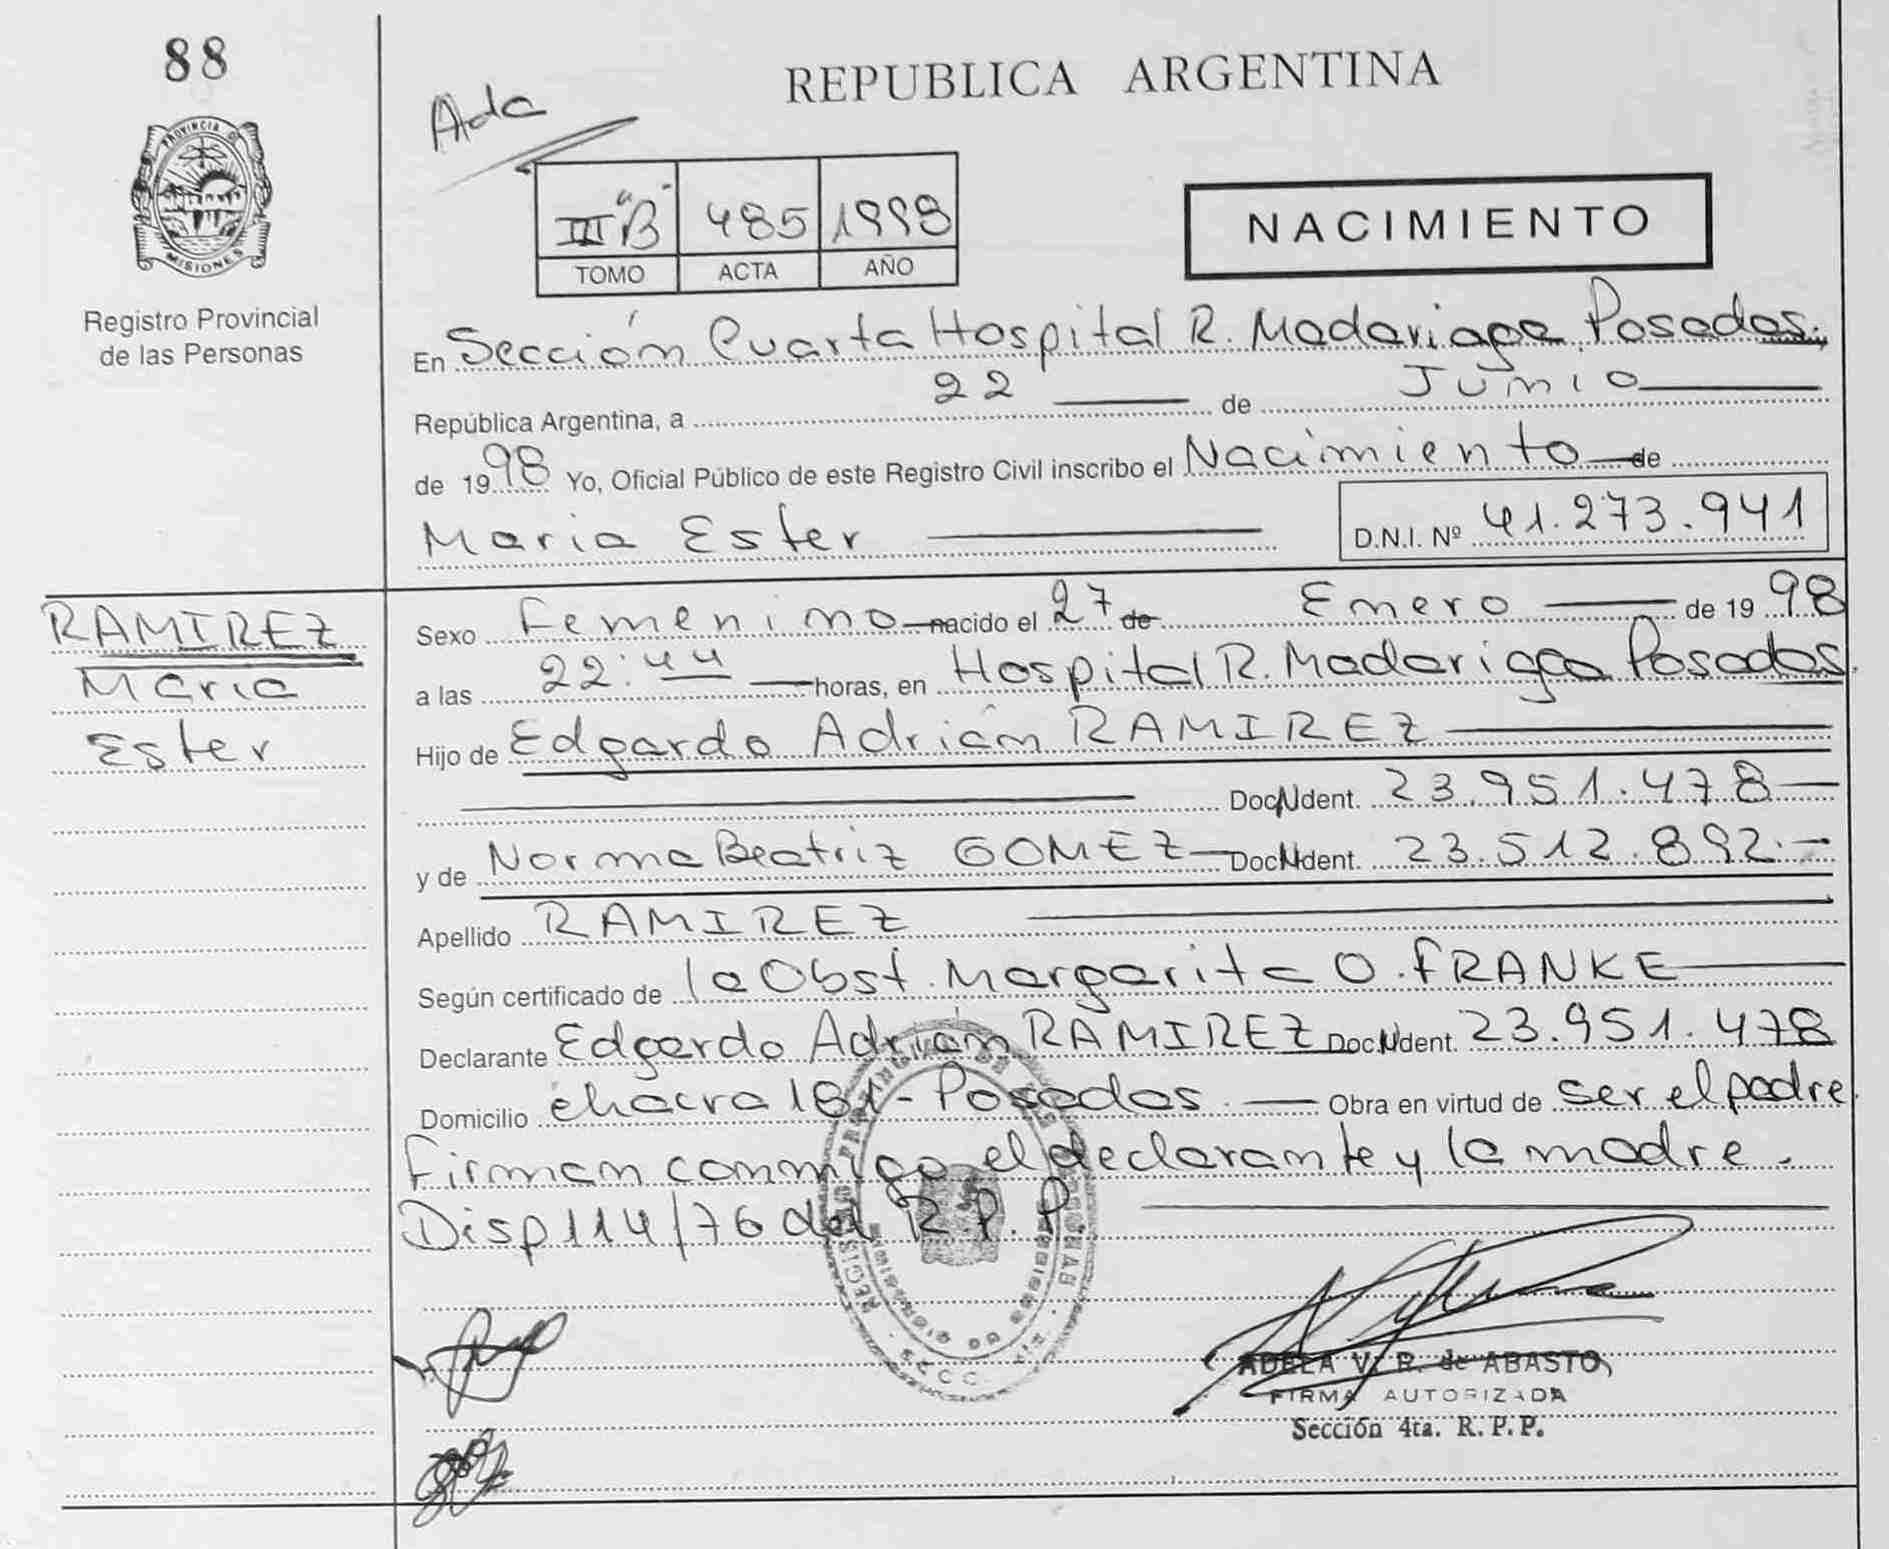 88
REPUBLICA ARGENTINA
Ada
III "B" 485 1998
TOMO ACTA AÑO
NACIMIENTO
PROVINCIA D MISIONES
Registro Provincial
de las Personas
En Sección Cuarta Hospital R. Madariaga Posadas.
República Argentina, a 22 de Junio
de 1998 Yo, Oficial Público de este Registro Civil inscribo el Nacimiento de
Maria Ester D.N.I. Nº 41.273.941
RAMIREZ
Maria
Ester
Sexo Femenino nacido el 27 de Enero de 1998
a las 22:44 horas, en Hospital R. Madariaga Posadas.
Hijo de Edgardo Adrián RAMIREZ
Doc.N Ident. 23.951.478
y de Norma Beatriz GOMEZ Doc.N Ident. 23.512.892.-
Apellido RAMIREZ
Según certificado de la Obst. Margarita O. FRANKE
Declarante Edgardo Adrián RAMIREZ Doc.N Ident. 23.951.478
Domicilio chacra 181 - Posadas. Obra en virtud de ser el padre.
Firman conmigo el declarante y la madre.
Disp 114/76 del R.P.P.
ADELA V. R. de ABASTO
FIRMA AUTORIZADA
Sección 4ta. R. P. P.